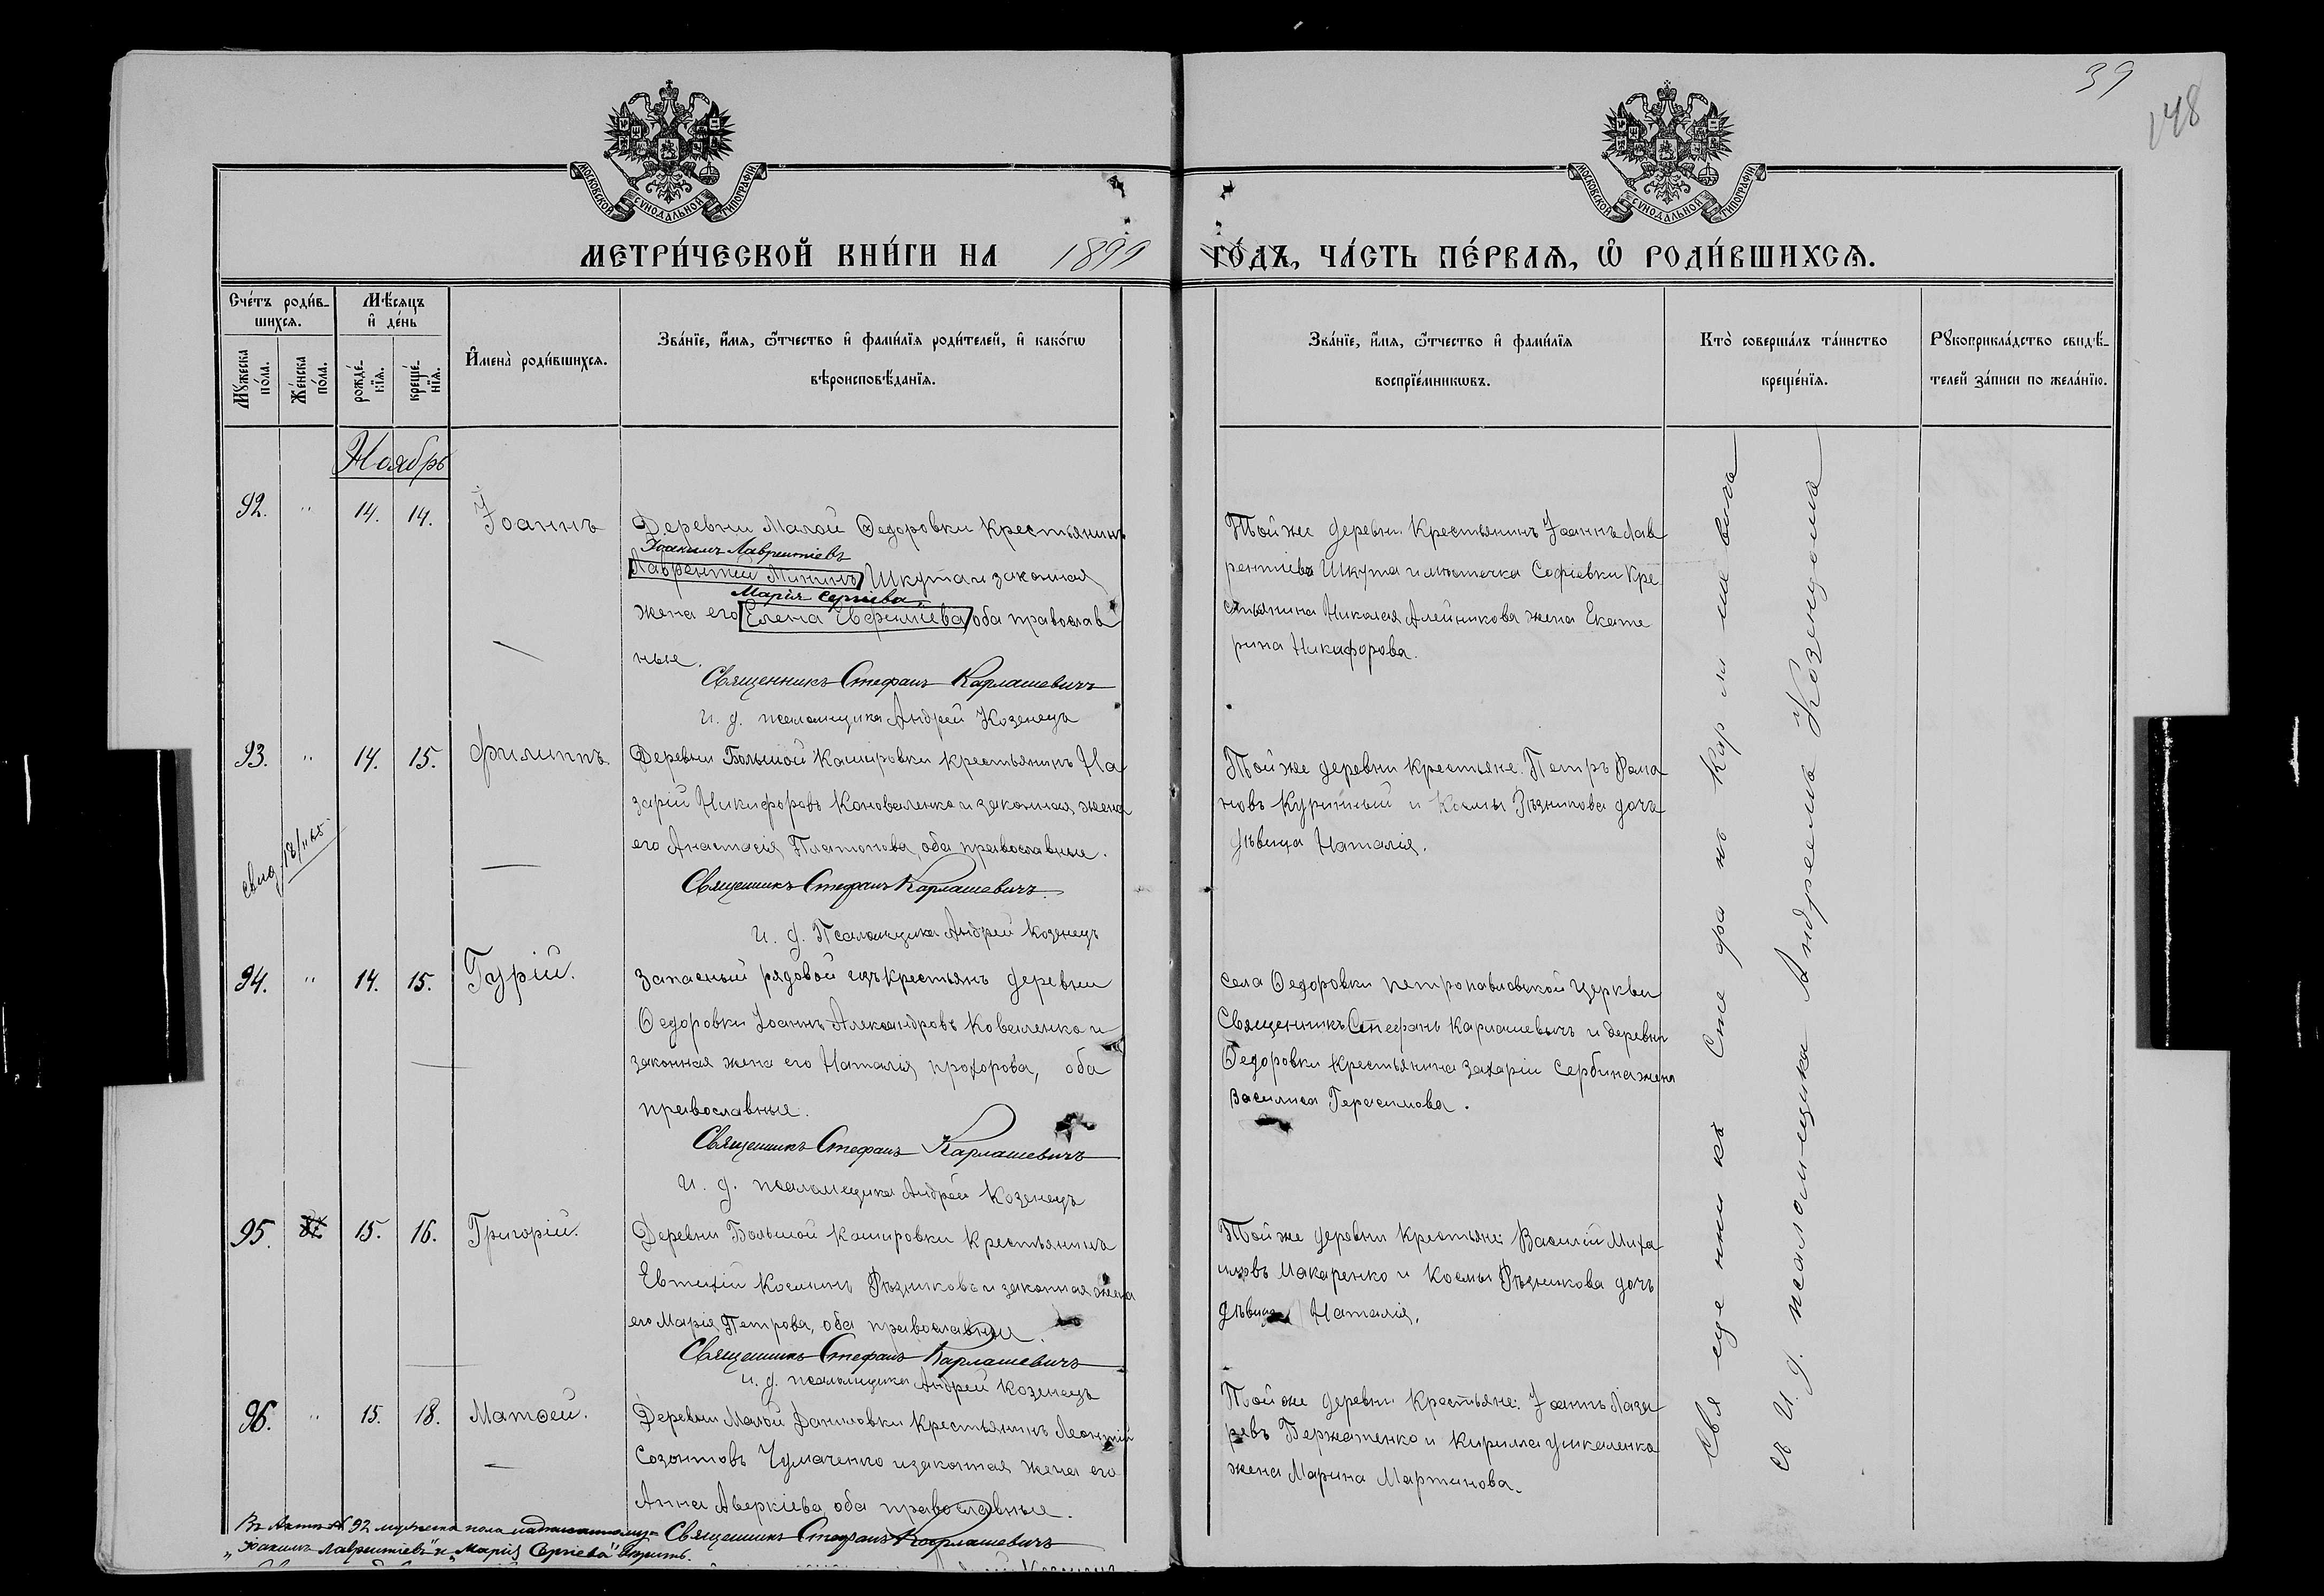 39
148
МОСКОВСКОЙ СѴНОДАЛЬНОЙ ТИПОГРАФІИ
МОСКОВСКОЙ СѴНОДАЛЬНОЙ ТИПОГРАФІИ
МЕТРИ́ЧЕСКОЙ КНИ́ГИ НА 1899 ГО́ДЪ, ЧА́СТЬ ПЕ́РВАЯ, Ѡ РОДИ́ВШИХСЯ.
Сче́тъ роди́в-
шихся.
Мѣ́сяцъ
и де́нь
Му́жеска по́ла.
Же́нска по́ла.
рожде́-
нїя.
креще́-
нїя.
Имена̀ роди́вшихся.
Зва́нїе, и́мя, ѻ́тчество и фами́лїя роди́телей, и како́гѡ
вѣроисповѣ́данїя.
Зва́нїе, и́мя, ѻ́тчество и фами́лїя
воспрїе́мникѡвъ.
Кто̀ соверша́лъ та́инство
креще́нїя.
Рукоприкла́дство свидѣ́-
телей за́писи по жела́нїю.
Ноябрь
92. " 14. 14. Іоаннъ
Деревни Малой Ѳедоровки крестьянинъ
Іоакимъ Лаврентіевъ
Лаврентій Мининъ Шкута и законная
Марія Сергіева
жена его Елена Евфиміева оба православ
ные.
Священникъ Стефанъ Карлашевичъ
и. д. псаломщика Андрей Козенецъ
Той же деревни крестьянинъ Іоаннъ Лав
рентіевъ Шкута и местечка Софіевки кре
стьянина Николая Алейникова жена Екате
рина Никифорова.
93. " 14. 15. Филиппъ
Деревни Большой Кашировки крестьянинъ На
зарій Никифоровъ Коноваленко и законная жена
его Анастасія Платонова, оба православные.
Священникъ Стефанъ Карлашевичъ
и. д. Псаломщика Андрей Козенецъ
Той же деревни крестьяне: Петръ Рома
новъ Куринный и Космы Рѣзникова дочь
дѣвица Наталія.
94. " 14. 15. Гурій.
Запасный рядовой изъ крестьянъ деревни
Ѳедоровки Іоаннъ Александровъ Коваленко и
законная жена его Наталія Прохорова, оба
православные.
Священникъ Стефанъ Карлашевичъ
и. д. псаломщика Андрей Козенецъ
Села Ѳедоровки Петропавловской церкви
Священникъ Стефанъ Карлашевичъ и деревни
Ѳедоровки крестьянина Захарія Сербина жена
Василиса Герасимова.
95. 15. 16. Григорій.
Деревни Большой Кашировки крестьянинъ
Евтихій Косминъ Рѣзниковъ и законная жена
его Марія Петрова, оба православные.
Священникъ Стефанъ Карлашевичъ
и. д. псаломщика Андрей Козенецъ
Той же деревни крестьяне: Василій Миха
иловъ Макаренко и Космы Рѣзникова дочь
дѣвица Наталія.
96. " 15. 18. Матѳей.
Деревни Малой крестьянинъ Леонтій
Созонтовъ Чумаченко и законная жена его
Анна Аверкіева оба православные.
Священникъ Стефанъ Карлашевичъ
Той же деревни крестьяне: Іоаннъ Лаза
ревъ Бержатенко и Кирилла Ушкаленка
жена Марина Мартинова.
Священникъ Стефанъ Карлашевичъ
съ и. д. псаломщика Андреемъ Козенцомъ
Въ Актѣ № 92 мужеска пола надписанному
"Іоакимъ Лаврентіевъ" и "Марія Сергіева" вѣрить.